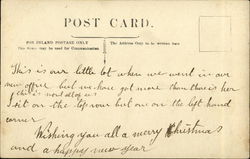 POST CARD.
FOR INLAND POSTAGE ONLY
This Space may be used for Communication
The Address Only to be written here
This is our little lot when we went in our
new office but we have got more than there is here
(this is not all of us)
I sit on the top row but one on the left hand
corner
Wishing you all a merry Christmas
and a happy new year